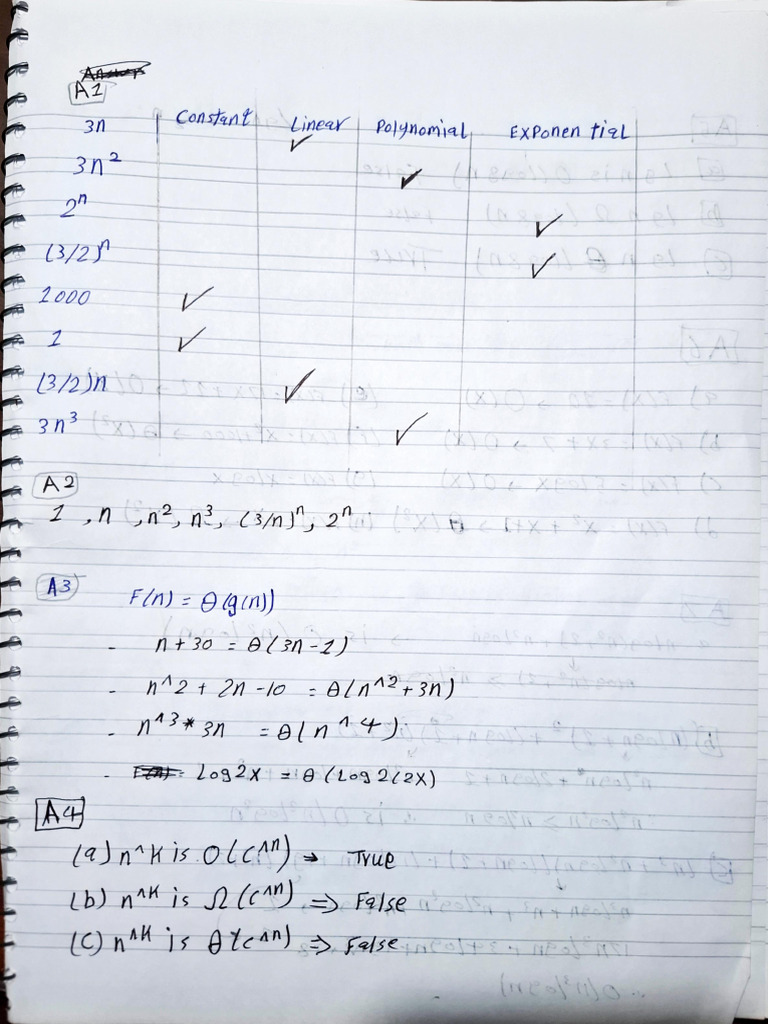 A1
Constant Linear Polynomial Exponential
3n ✓
3n² ✓
2ⁿ ✓
(3/2)ⁿ ✓
1000 ✓
1 ✓
(3/2)n ✓
3n³ ✓
A2
1, n, n², n³, (3/n)ⁿ, 2ⁿ
A3
F(n) = θ(g(n))
- n+30 = θ(3n-1)
- n^2 + 2n -10 = θ(n^2 + 3n)
- n^3 * 3n = θ(n^4)
- Log2x = θ(Log2(2x)
A4
(a) n^k is O(c^n) → True
(b) n^k is Ω(c^n) ⇒ False
(C) n^k is θ(c^n) ⇒ False